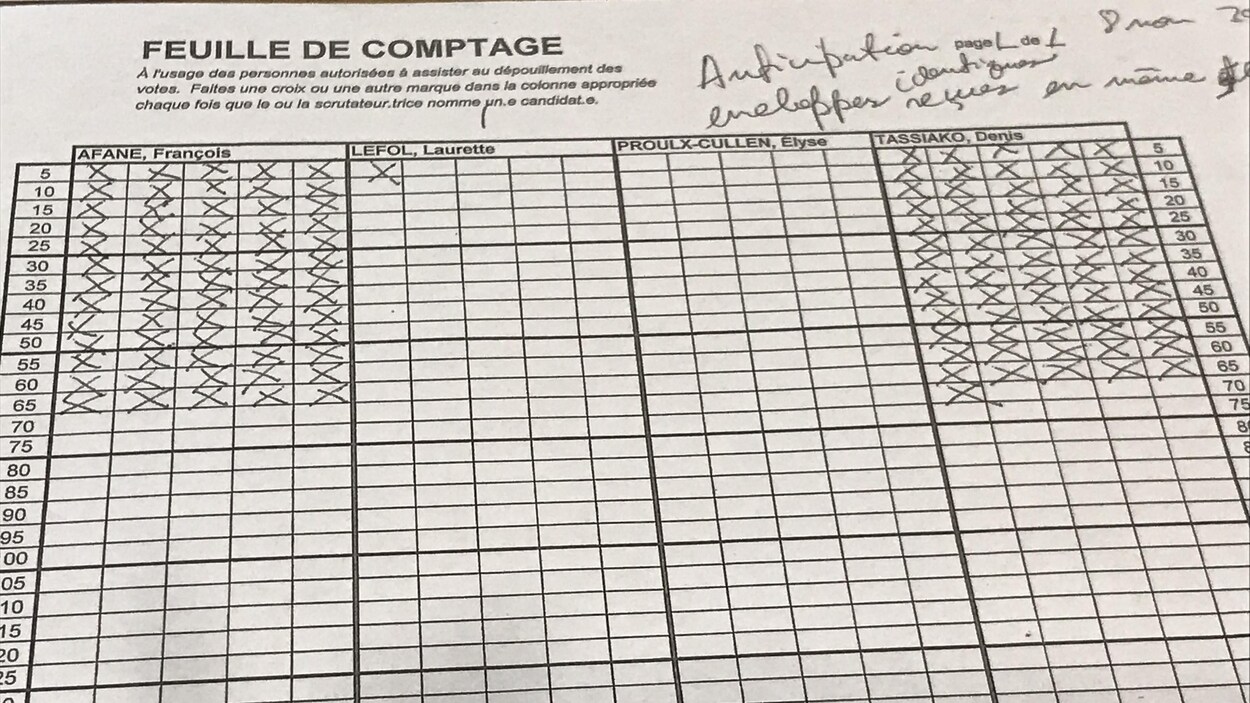 FEUILLE DE COMPTAGE
À l'usage des personnes autorisées à assister au dépouillement des
votes. Faites une croix ou une autre marque dans la colonne appropriée
chaque fois que le ou la scrutateur.trice nomme un.e candidat.e.
Anticipation page 1 de 1 8 nov
identiques
enveloppes reçues en même
AFANE, François LEFOL, Laurette PROULX-CULLEN, Élyse TASSIAKO, Denis
5 5
10 10
15 15
20 20
25 25
30 30
35 35
40 40
45 45
50 50
55 55
60 60
65 65
70 70
75 75
80
85
90
95
00
05
10
15
20
25